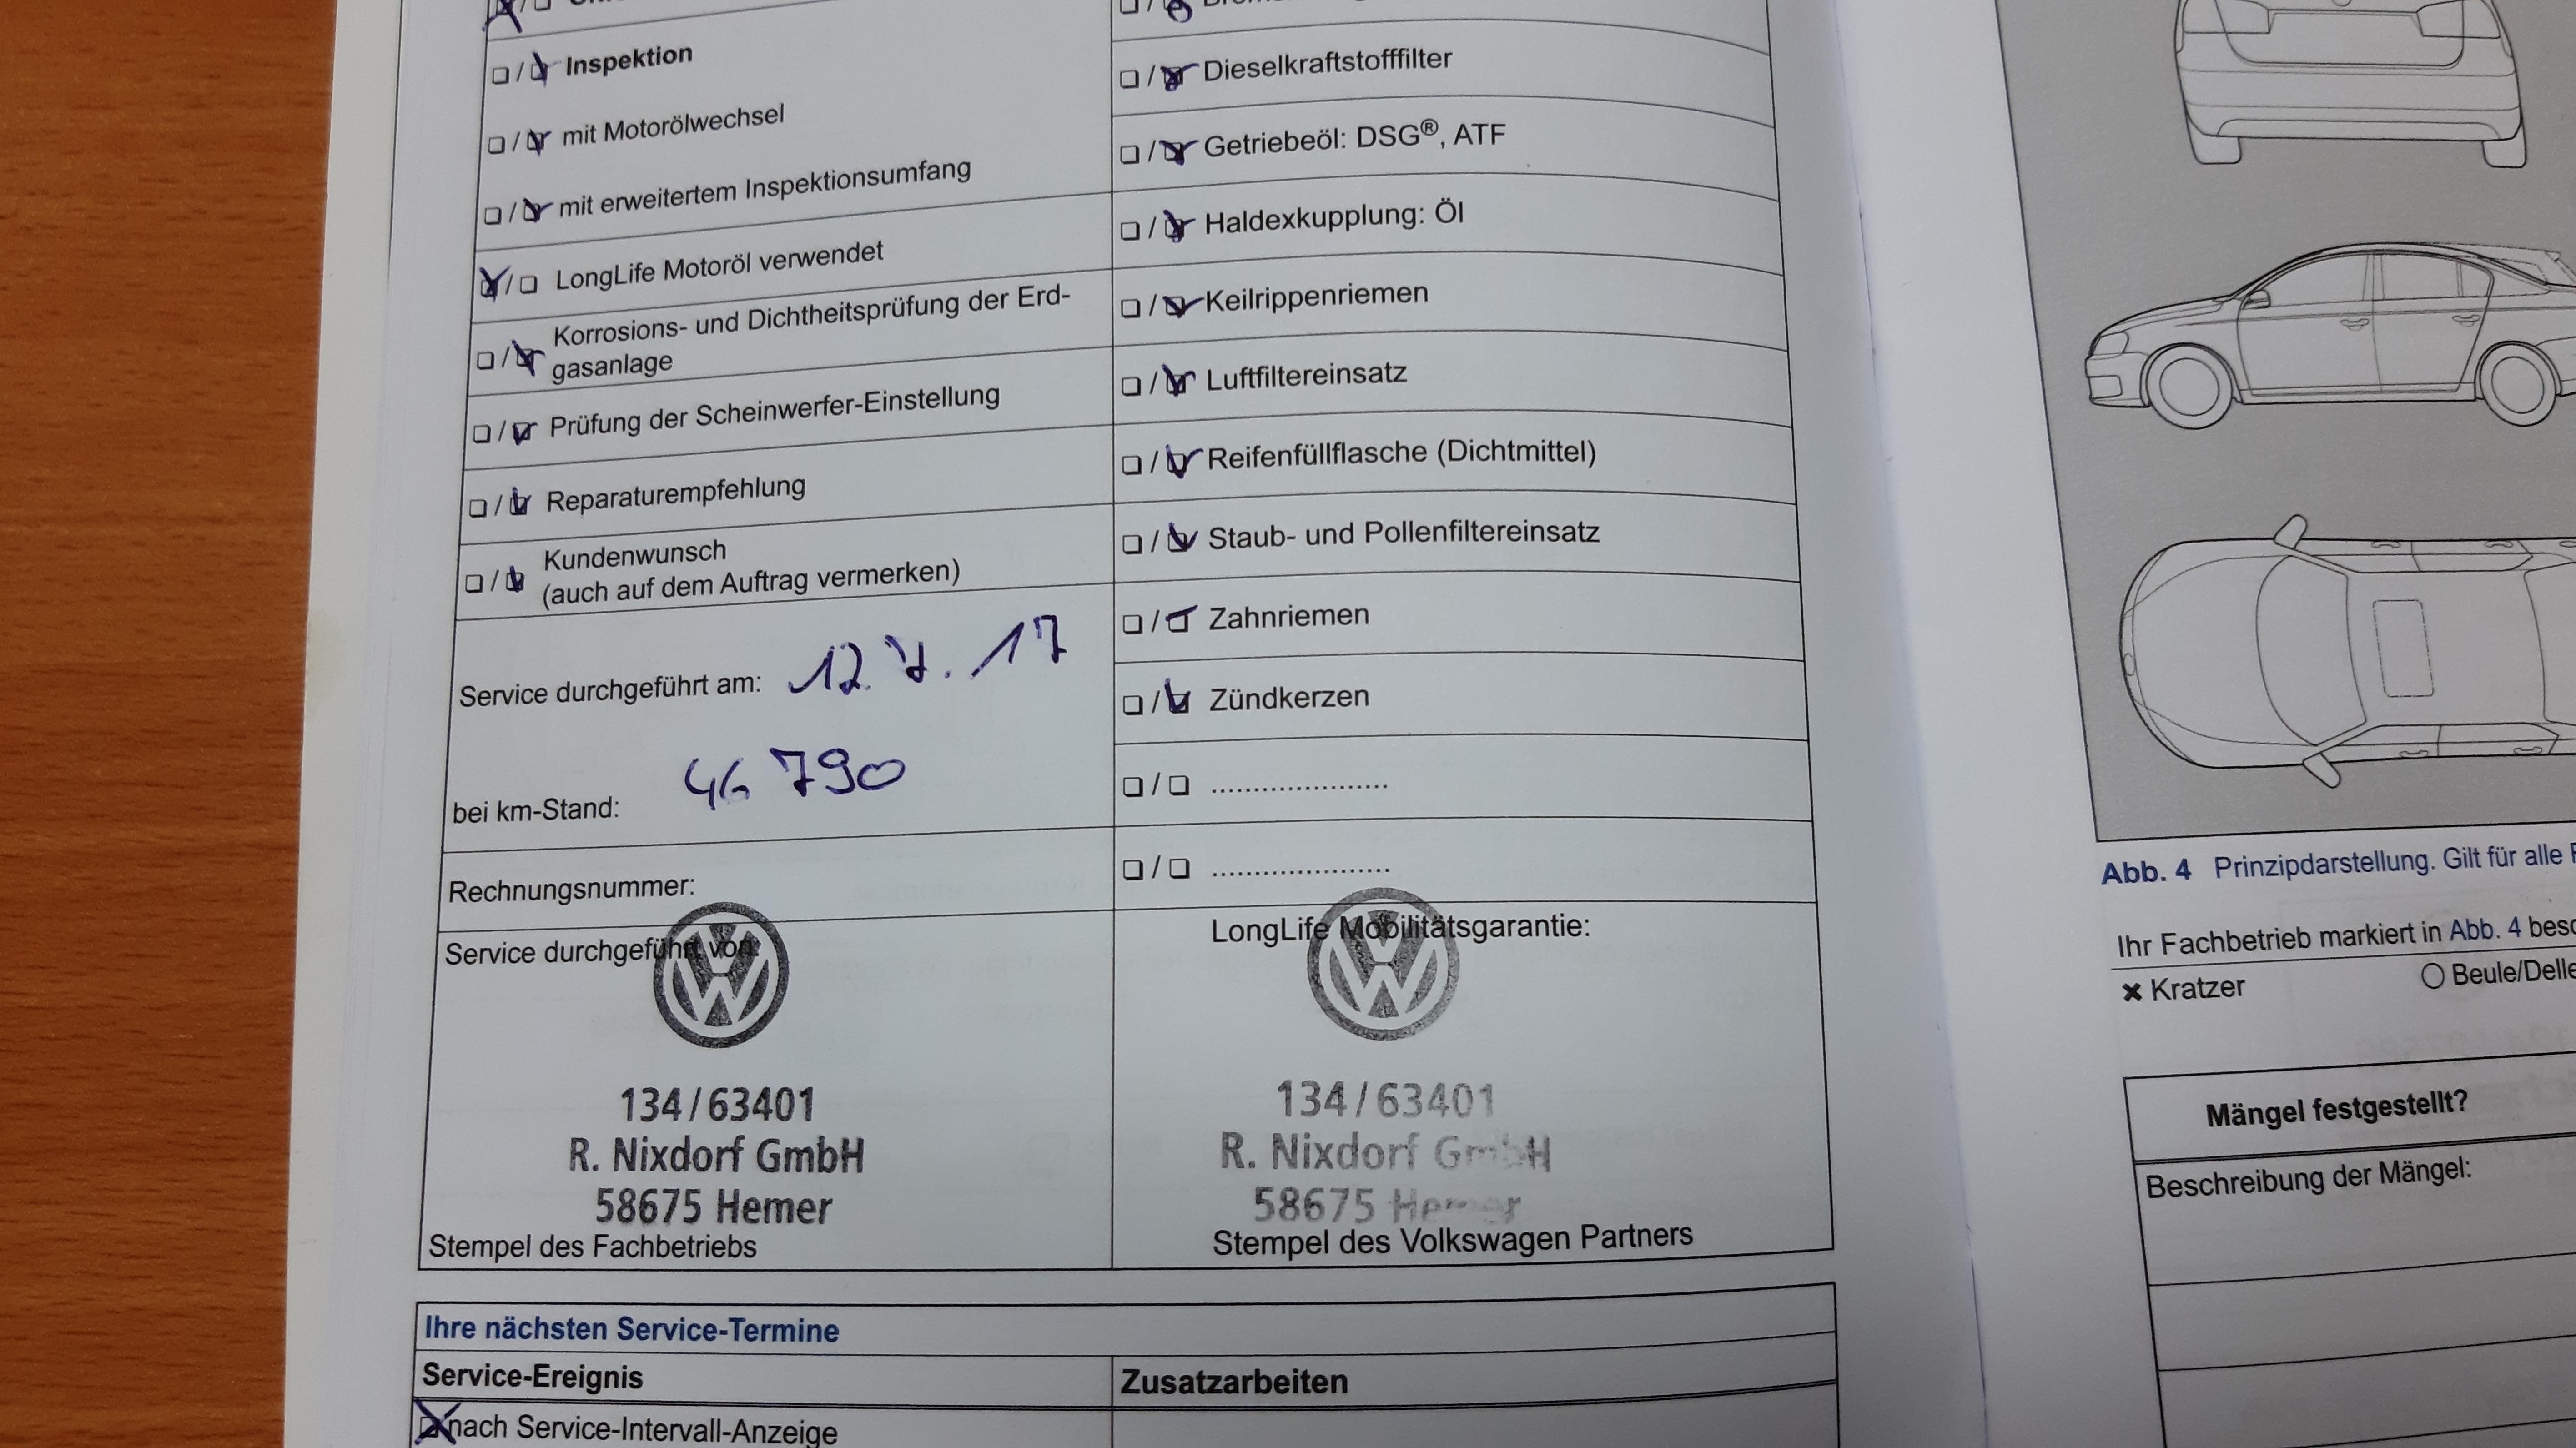 Inspektion
mit Motorölwechsel
mit erweitertem Inspektionsumfang
LongLife Motoröl verwendet
Korrosions- und Dichtheitsprüfung der Erd-
gasanlage
Prüfung der Scheinwerfer-Einstellung
Reparaturempfehlung
Kundenwunsch
(auch auf dem Auftrag vermerken)
Service durchgeführt am: 12. 7. 17
bei km-Stand: 46 790
Rechnungsnummer:
Service durchgeführt von:
134/63401
R. Nixdorf GmbH
58675 Hemer
Stempel des Fachbetriebs
Dieselkraftstofffilter
Getriebeöl: DSG®, ATF
Haldexkupplung: Öl
Keilrippenriemen
Luftfiltereinsatz
Reifenfüllflasche (Dichtmittel)
Staub- und Pollenfiltereinsatz
Zahnriemen
Zündkerzen
......................
.....................
LongLife Mobilitätsgarantie:
134/63401
R. Nixdorf GmbH
58675 Hemer
Stempel des Volkswagen Partners
Ihre nächsten Service-Termine
Service-Ereignis
Zusatzarbeiten
nach Service-Intervall-Anzeige
Abb. 4 Prinzipdarstellung. Gilt für alle
Ihr Fachbetrieb markiert in Abb. 4
Kratzer
Beule/Delle
Mängel festgestellt?
Beschreibung der Mängel: